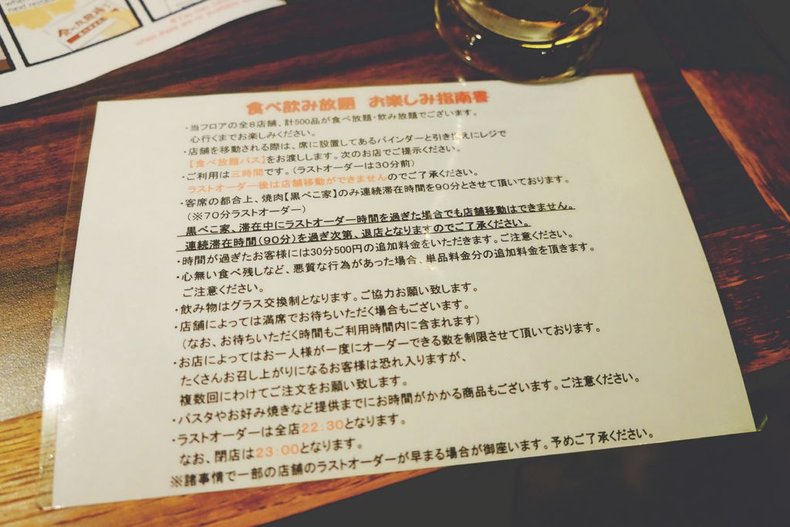 食べ飲み放題 お楽しみ指南書
・当フロアの全8店舗、計500品が食べ放題・飲み放題でございます。
心行くまでお楽しみください。
・店舗を移動される際は、席に設置してあるバインダーと引き換えにレジで
【食べ放題パス】をお渡しします。次のお店でご提示ください。
・ご利用は三時間です。(ラストオーダーは30分前)
ラストオーダー後は店舗移動ができませんのでご了承ください。
・客席の都合上、焼肉【黒べこ家】のみ連続滞在時間を90分とさせて頂いております。
(※70分ラストオーダー)
黒べこ家、滞在中にラストオーダー時間を過ぎた場合でも店舗移動はできません。
連続滞在時間(90分)を過ぎ次第、退店となりますのでご了承ください。
・時間が過ぎたお客様には30分500円の追加料金をいただきます。ご注意ください。
・心無い食べ残しなど、悪質な行為があった場合、単品料金分の追加料金を頂きます。
ご注意ください。
・飲み物はグラス交換制となります。ご協力お願い致します。
・店舗によっては満席でお待ちいただく場合もございます。
(なお、お待ちいただく時間もご利用時間内に含まれます)
・お店によってはお一人様が一度にオーダーできる数を制限させて頂いております。
たくさんお召し上がりになるお客様は恐れ入りますが、
複数回にわけてご注文をお願い致します。
・パスタやお好み焼きなど提供までにお時間がかかる商品もございます。ご注意ください。
・ラストオーダーは全店22:30となります。
なお、閉店は23:00となります。
※諸事情で一部の店舗のラストオーダーが早まる場合が御座います。予めご了承ください。